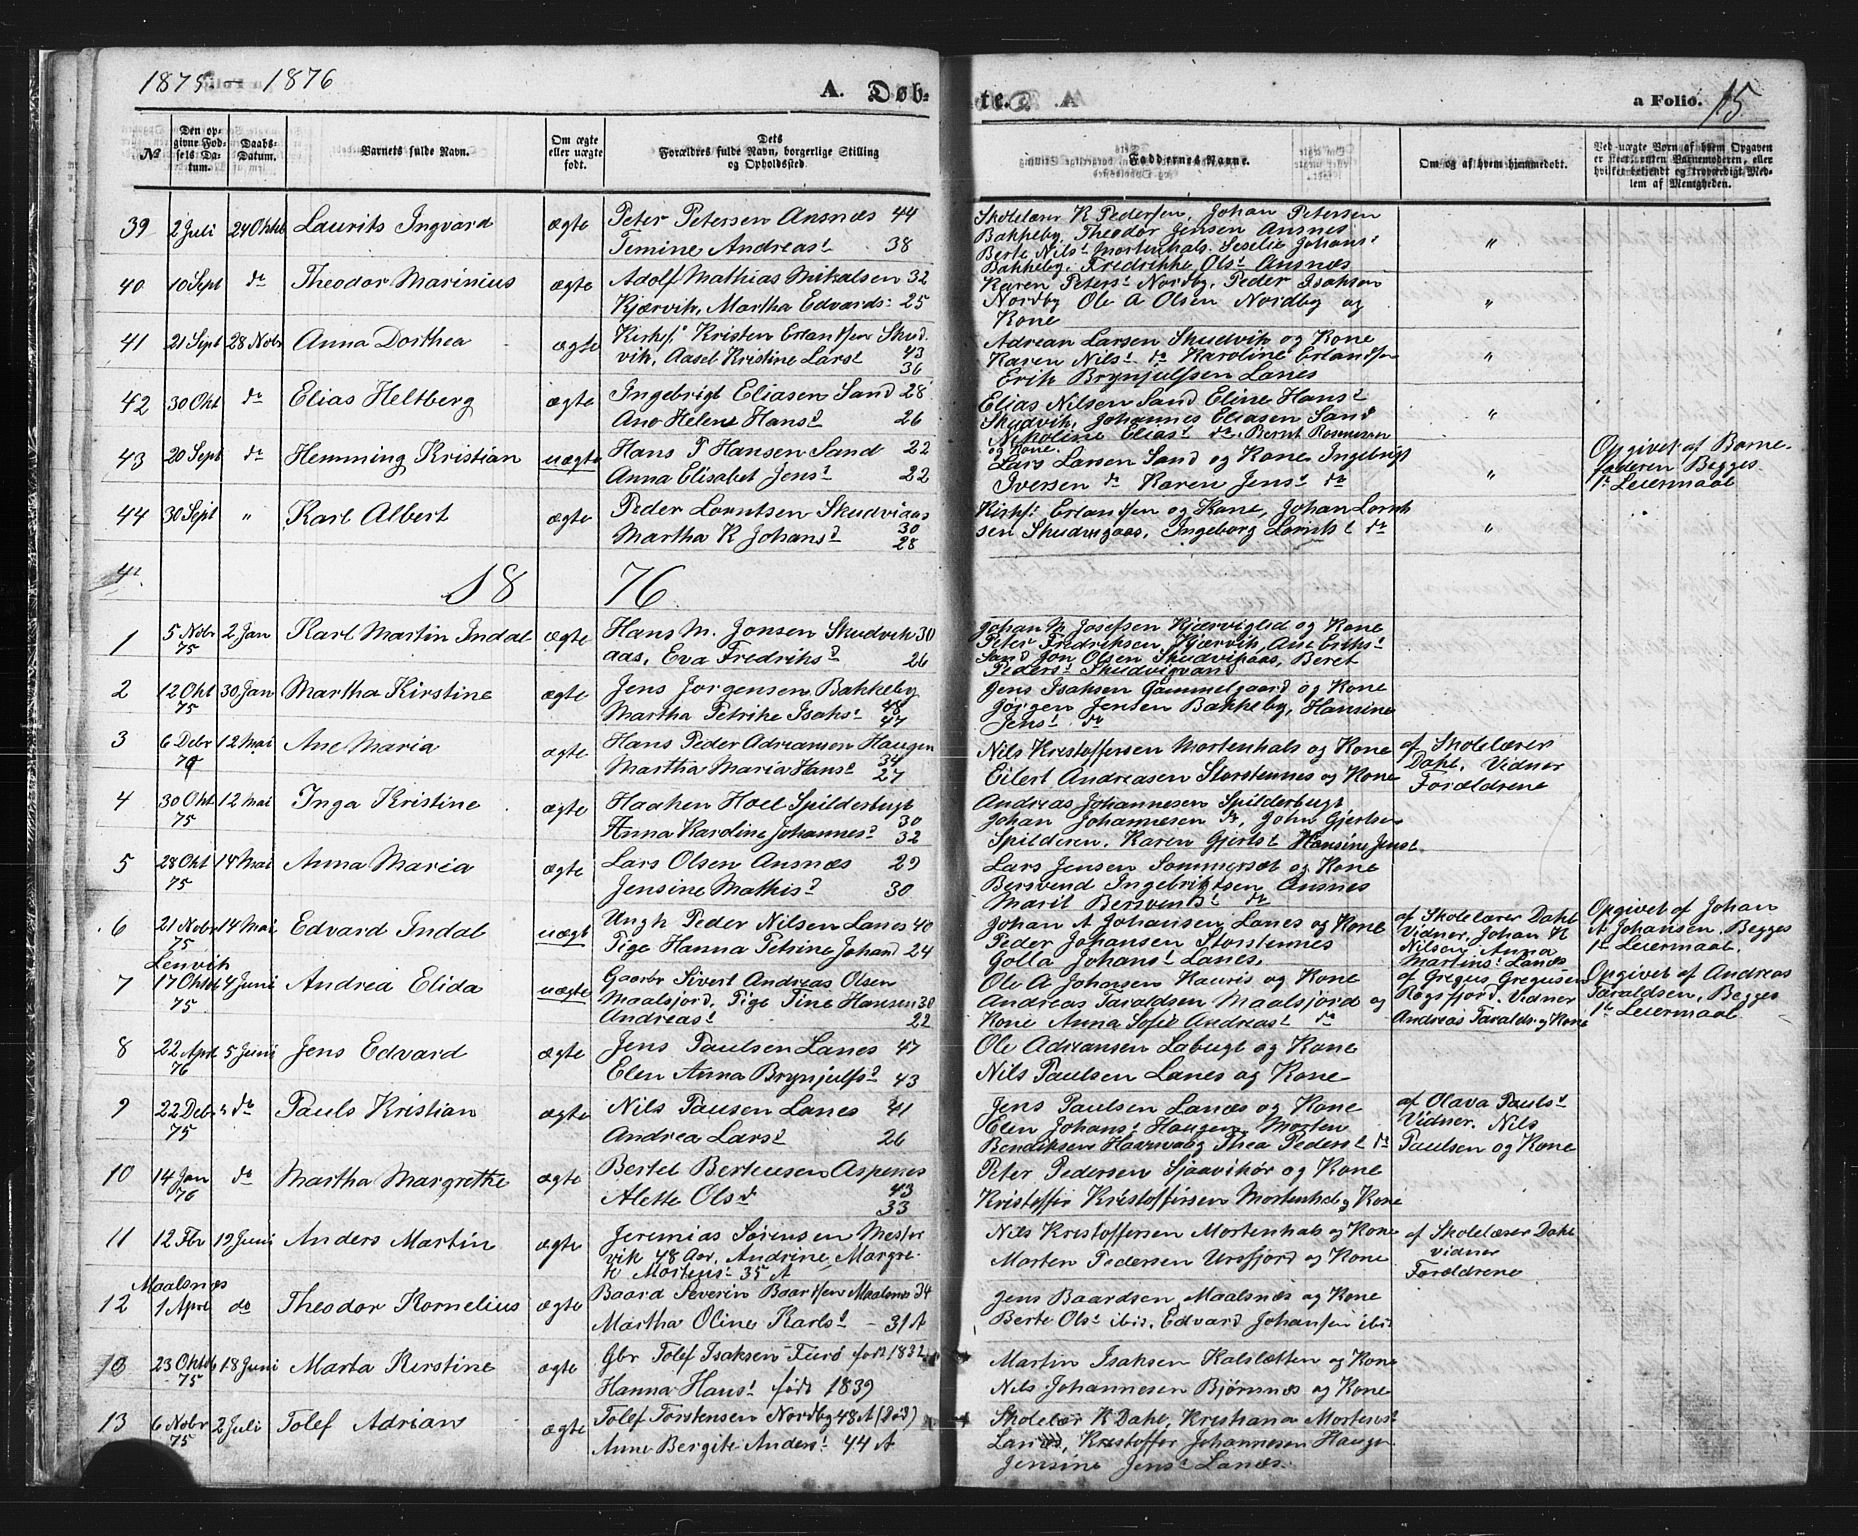 1875 — 1876
A. Døb-
te. A
a Folio. 15
№
Den op-
givne Fød-
sels Da-
tum.
Daabs-
Datum.
Barnets fulde Navn.
Om ægte
eller uægte
født.
Dets
Forældres fulde Navn, borgerlige Stilling
og Opholdssted.
Faddernes Navne.
Om og af hvem hjemmedøbt.
Ved uægte Børn af hvem Opgaven
er skeet, enten Barnemoderen, eller
hvilket bekjendt og troværdigt Med-
lem af Menigheden.
39 2 Juli 24 Oktb Laurits Ingvard ægte Peter Petersen Ansnæs 44
Temine Andreasd 38
Skolelærer K Pedersen, Johan Petersen
Bakkeby Theodor Jensen Ansnes
Berte Nilsd Mortenhals. Seselie Johansd
Bakkeby. Fredrikke Olsd Ansnæs
"
40 10 Sept do Theodor Marinius ægte Adolf Mathias Mikalsen 32
Kjærvik, Martha Edvards: 25
Karen Petersd Nordby, Peder Isaksen
Nordby Ole A Olsen Nordby og
Kone
"
41 21 Sept 28 Nobr Anna Dorthea ægte Kirksf Kristen Erlandsen Skud
vik, Aasel Kristine Larsd 43
36
Adrian Larsen Skudvik og Kone
Karen Nilsd do Karoline Erlandsen
Erik Brynjulfsen Lanes
"
42 30 Okt do Elias Heltberg ægte Ingebrigt Eliasen Sand 28
Ane Helene Hansd 26
Elias Nilsen Sand Eline Hansd
Skudvik, Johannes Eliasen Sand
Nikoline Eliasd do. Bernt
og Kone.
"
43 20 Sept do Hemming Kristian uægte Hans P Hansen Sand 22
Anna Elisabet Jensd 22
Lars Larsen Sand og Kone Ingebrigt
Iversen do Karen Jensd do
"
Opgivet af Barne-
faderen Begges
1t Leiermaal
44 30 Sept " Karl Albert ægte Peder Lorntsen Skudviaas
Martha K Johansd 30
28
Kirksf Erlandsen og Kone, Johan Lornt
sen Skudvigaas, Ingeborg Lorntsd do
"
18 76
1 5 Nobr 75 2 Jan Karl Martin Indal ægte Hans M. Jonsen Skudvik 30
aas, Eva Fredriksd 26
Johan M Josefsen Kjærviglid og Kone
Peter Fredriksen Kjærvik, Ane Eriksd
Sand Jon Olsen Skudvikaas, Beret
Pedersd Skudvigvand
2 12 Okt 75 30 Jan Martha Kirstine ægte Jens Jørgensen Bakkeby
Martha Petrike Isaksd 48
47
Jens Isaksen Gammelgaard og Kone
Jørgen Jensen Bakkeby, Hansine
Jensd do
3 6 Debr 12 Mai Ane Maria ægte Hans Peder Adriansen Haugen
Martha Maria Hansd 34
27
Nils Kristoffersen Mortenhals og Kone
Eilert Andreasen Storstennes og Kone
af Skolelærer
Dahl. Vidner
Forældrene
4 30 Okt 75 12 Mai Inga Kristine ægte Haaken Hoel Spilderbugt
Anna Karoline Johannesd 30
32
Andreas Johannesen Spilderbugt
Johan Johannesen do, John Gjertsen
Spilderen. Karen Gjertsd Hansine Jensd
5 28 Okt 75 14 Mai Anna Maria ægte Lars Olsen Ansnæs 29
Jensine Mathisd 30
Lars Jensen Sommersæt og Kone
Bersvend Ingebriktsen Ansnes
Marit Bersvendsd do
6 21 Nobr 75 14 Mai Edvard Indal uægt Ungk Peder Nilsen Lanes 40
Pige Hanna Petrine Johand 24
Johan A Johansen Lanes og Kone
Peder Johansen Storstennes
Golla Johansd Lanes.
af Skolelærer Dahl
Vidner. Johan K
Nilsen. Anna
Martinsd Lanes
Opgivet af Johan
A Johansen. Begges
1te Leiermaal.
Lenvik
7 17 Oktob 75 4 Juni Andrea Elida uægte Gaarbr Sivert Andreas Olsen
Maalsjord, Pige Tine Hansen 30
Andreasd 22
Ole A Johansen Kauris og Kone
Andreas Taraldsen Maalsjord og
Kone Anna Sofie Andreasd do
af Gregus Gregusen
Røgsfjord. Vidner
Andreas Taralds. og Kone
Opgivet af Andreas
Taraldsen. Begges
1te Leiermaal
8 22 Apr 76 5 Juni Jens Edvard ægte Jens Paulsen Lanes 47
Elen Anna Brynjulfsd 43
Ole Adriansen Labugt og Kone
Nils Paulsen Lanes og Kone
9 22 Debr 75 do Pauls Kristian ægte Nils Pausen Lanes 41
Andrea Larsd 26
Jens Paulsen Lanæs og Kone
Elen Johansd Haugen Morten
Bendiksen Havnvaag Thea Pedersd do
af Olava Paulsd
Vidner. Nils
Paulsen og Kone
10 14 Jan 76 do Martha Margrethe ægte Bertel Berteusen Aspenes
Alette Olsd 43
33
Peter Pedersen Sjaavikør og Kone
Kristoffer Kristoffersen Mortenhal og Kone
11 12 Fbr 12 Juni Anders Martin ægte Jeremias Sørensen Mester
vik 48 Aar, Andrine Margre-
te Mortensd 35 A
Nils Kristoffersen Mortenhals og Kone
Morten Pedersen Ursfjord og Kone
af Skolelærer Dahl
vidner
Forældrene
Maalsnæs
12 1 April do Theodor Kornelius ægte Baard Severin Baardsen Maalsnes 34
Martha Oline Karlsd - 31 A
Jens Baardsen Maalsnæs og Kone
Berte Olsd ibid. Edvard Johansen ibi
13 23 Oktob 75 18 Juni Marta Kirstine ægte Gbr Tolef Isaksen Furö født 1832
Hanna Hansd født 1839
Martin Isaksen Kalslætten og Kone
Nils Johannesen Bjørnnæs og Kone
13 6 Nobr 75 2 Juli Tolef Adrian ægte Tolef Torstensen Nordby 48 A (død)
Anne Bergite Andersd 44 A
Skolelær K Dahl, Kristiana Mortensd
Lanæs, Kristoffer Johannesen Haugen
Jensine Jensd Lanæs.